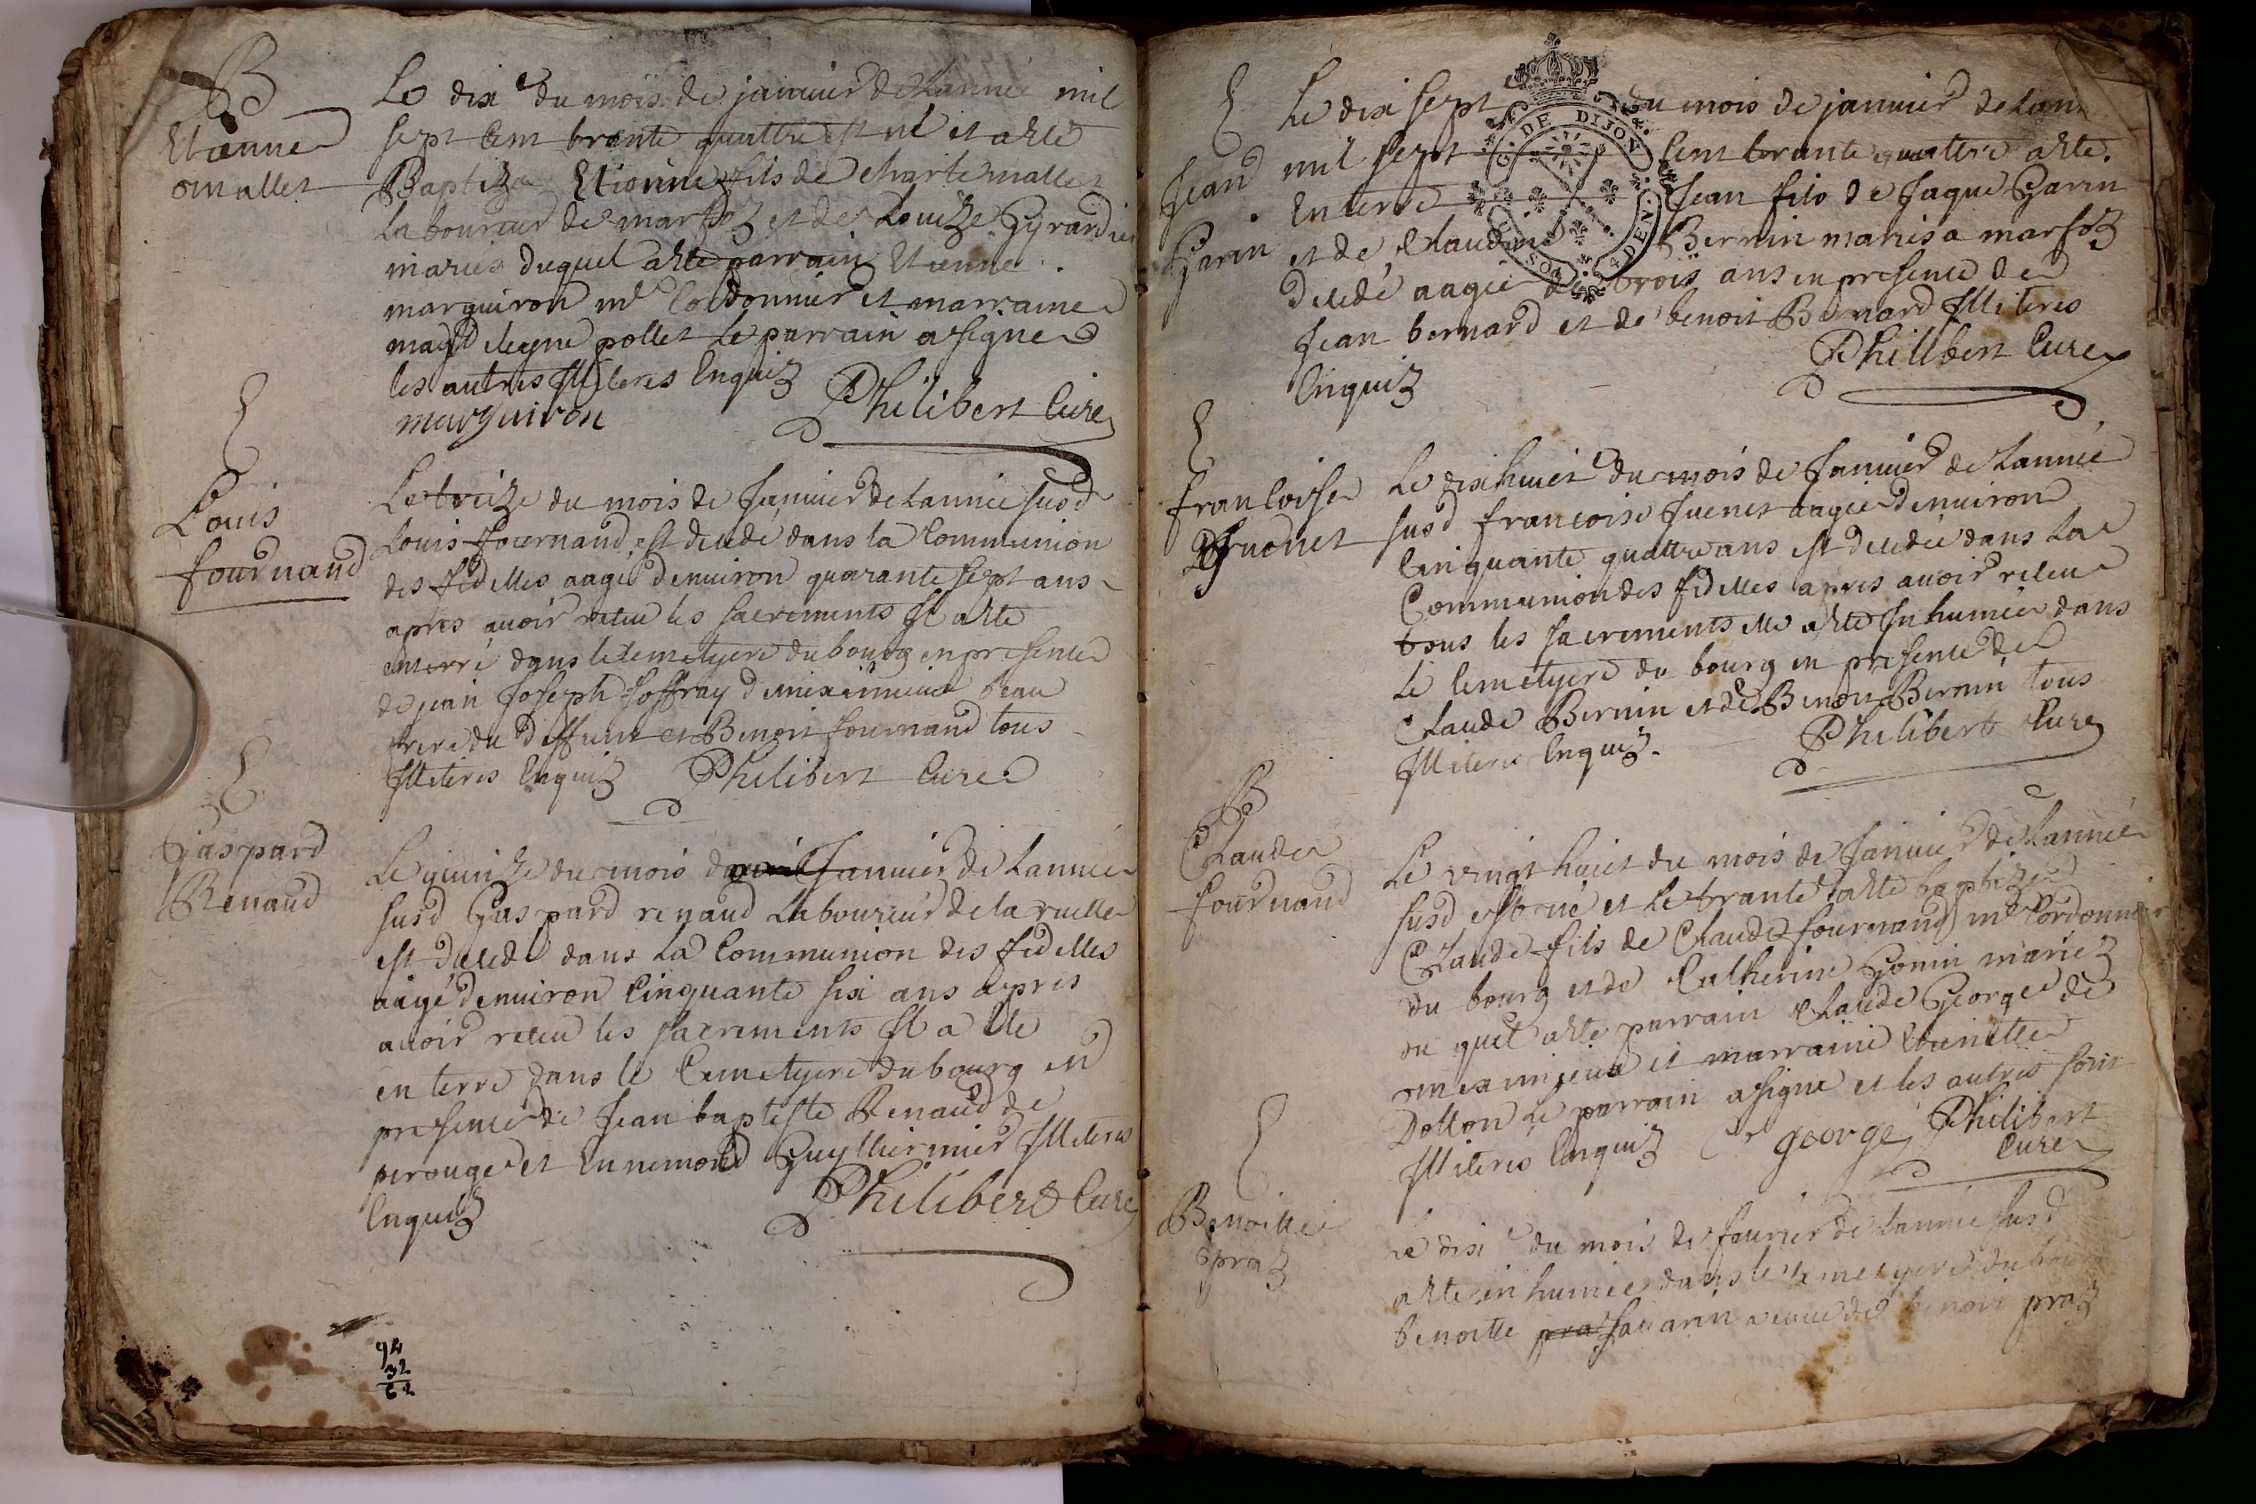 B
Etienne
mallet
Le dix e du mois de janvier de Lannée mil
sept Cent trante quattre est né et a este
Baptize Etienne fils de charle mallet
laboureur de marfoz et de Louize Gyrardier
mariés duquel a este parrain Etienne
marguiron md Cordonnier et marraine
magdeleyne pollet le parrain a signe
les autres Illiteres Enquiz
marguiron Philibert Cure
E
Louis
fournand
Le treize du mois de Janvier de Lannee susd
Louis fournand est decede dans la Communion
des fidelles aagé denuiron quarante sept ans
apres auoir receu les sacrements Il a este
enterré dans le cemetyere du bourg en presence
de jean Joseph Joffray de meximieux beau
frere du deffunt et Benoit fournand tous
Illiteres Enquiz Philibert Cure
E
Gaspard
Renaud
Le quinze du mois Janvier de Lannée
susd Gaspard renaud laboureur de la ruelle
est decede dans La Communion des fidelles
aagé denuiron Cinquante six ans apres
auoir receu les sacrements Il a este
enterre dans le Cemetyere du bourg en
presence de Jean baptiste Renaud de
perouge et Ennemond Guylliermier Illiteres
Enquiz Philibert Cure
94
32
62
E
Jean
Garin
G. DE DIJON
Le dix sept e du mois de janvier de Lann
mil sept Cent trante quattre a este
Enterré Jean fils de Jaque Garin
et de Claudine Bernin mariés a marfoz
decedé aagé de trois ans en presence de
Jean bernard et de benoit Bernard Illiteres
Enquiz Philibert Cure
E
francoise
Juenet
Le dixhuict e du mois de Janvier de Lannée
susd francoise Juenet aagée denuiron
Cinquante quattre ans est decedée dans La
Communion des fidelles apres auoir receu
tous les sacrements elle a este Inhumée dans
le Cemetyere du bourg en presence de
Claude Bernin et de Benoit Bernin tous
Illiteres Enquiz Philibert Cure
B
Claude
fournand
Le vingt huict du mois de Janvier de Lannée
susd est né et Le trante a este baptizé
Claude fils de Claude fournand md Cordonnier
du bourg et de Catherine Gonin mariez
du quel a este parrain Claude George de
meximieux et marraine Etienette
Dotton Le parrain a signe et les autres sont
Illiteres Enquiz Cl george Philibert
Cure
E
Benoitte
praz
Le dix e du mois de feurier de Lannée susd
a este inhumée dans le cemetyere du bourg
benoitte pra sauarin veuue de benoit praz